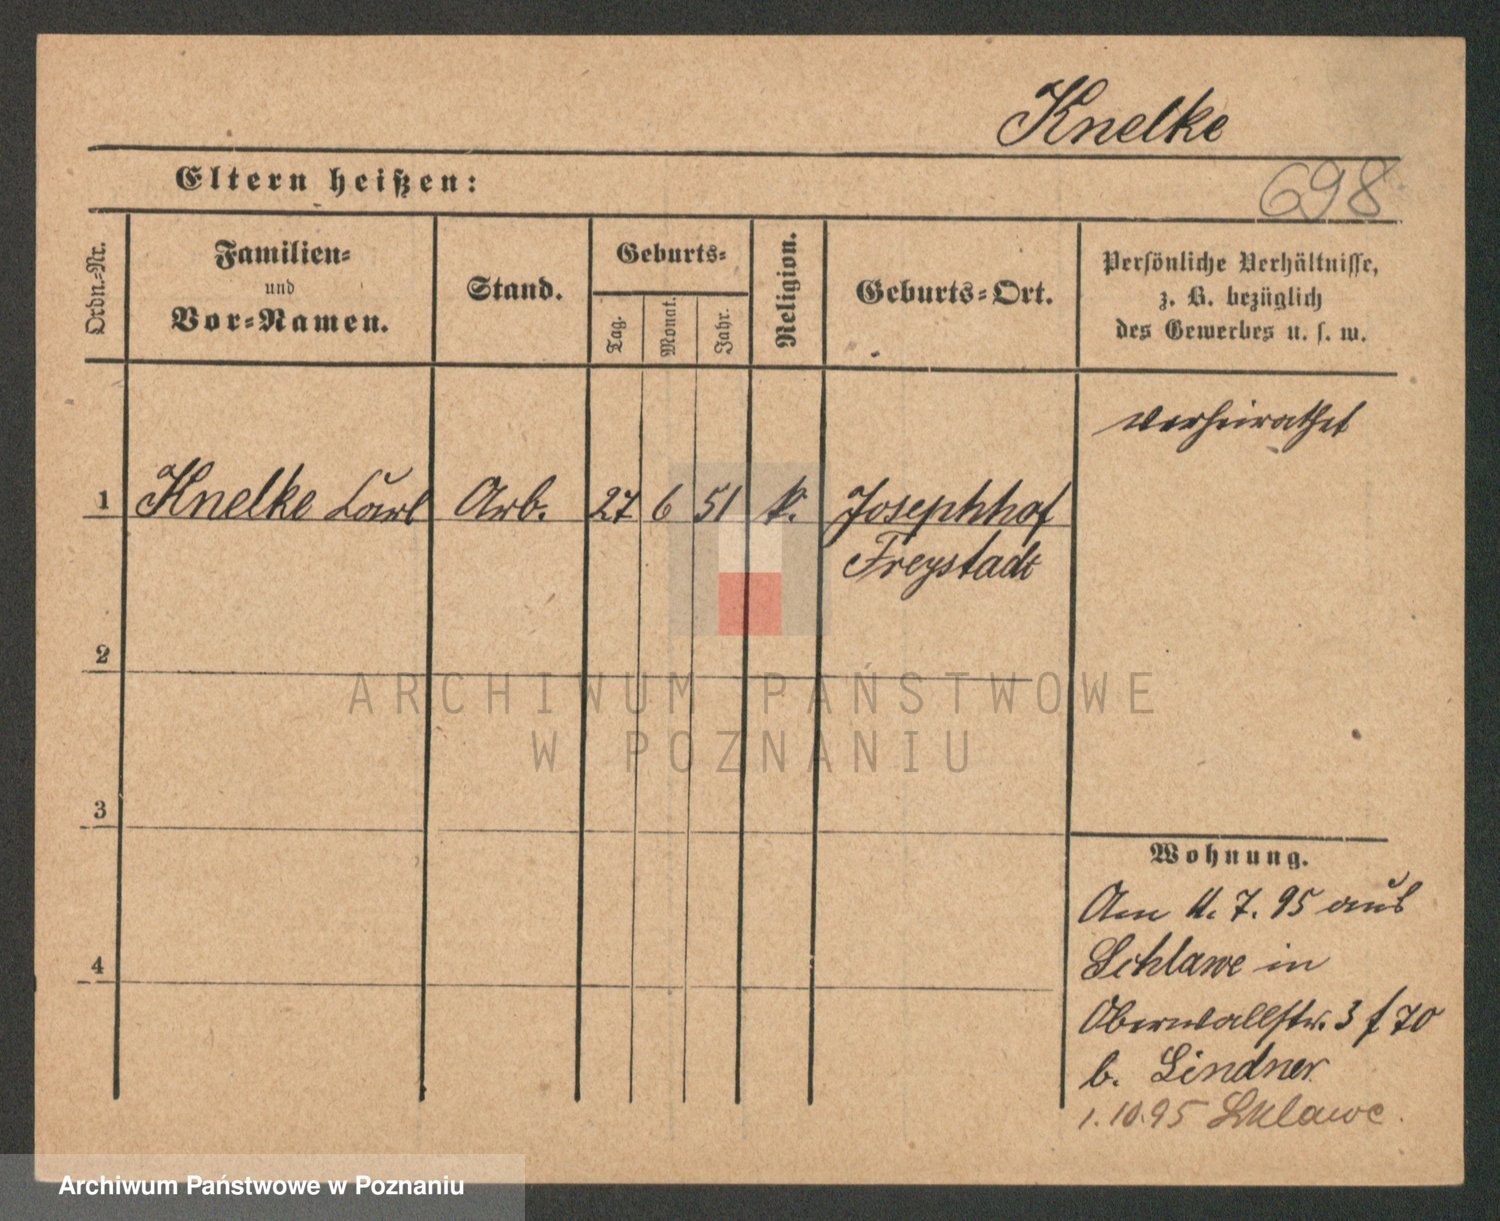 Knelke
Eltern heißen:
698
Ordn.-Nr.
Familien-
und
Vor-Namen.
Stand.
Geburts-
Tag.
Monat.
Jahr.
Religion.
Geburts-Ort.
Persönliche Verhältnisse,
z. B. bezüglich
des Gewerbes u. s. w.
verheirathet
1 Knelke Carl Arb. 27 6 51 k. Josephhof
Freystadt
2
3
4
Wohnung.
Am 11. 7. 95 aus
Schlawe in
Oberwallstr. 3 f 70
b. Lindner
1.10.95 Schlawe.
ARCHIWUM PAŃSTWOWE
W POZNANIU
Archiwum Państwowe w Poznaniu